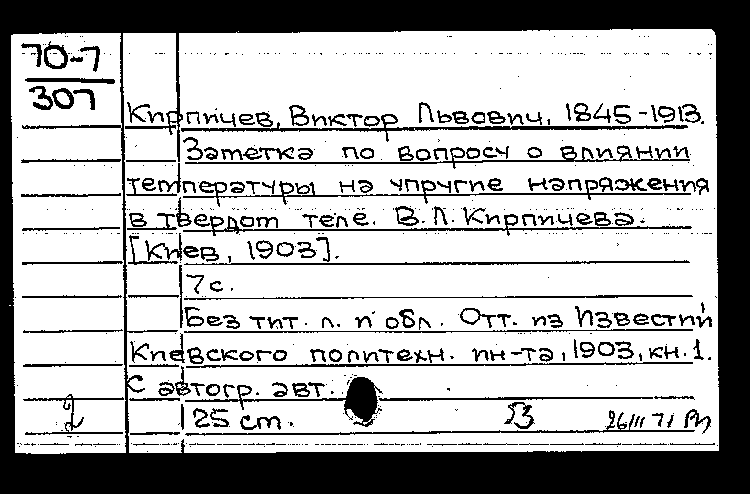 70-7
307
Кирпичев, Виктор Львович, 1845-1913.
Заметка по вопросу о влиянии
температуры на упругие напряжения
в твердом теле. В.Л. Кирпичева.
[Киев, 1903].
7 с.
Без тит. л. и обл. Отт. из Известий
Киевского политехн. ин-та, 1903, кн. 1.
С автогр. авт.
2 25 см.